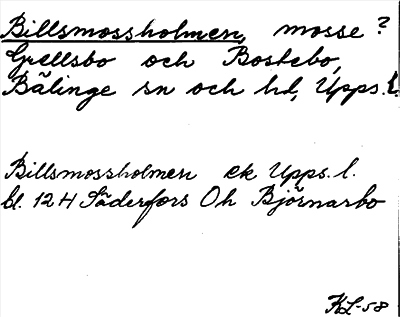 Billsmossholmen, mosse?
Grellsbo och Bostebo,
Bälinge sn och hd, Upps. l.
Billsmossholmen ek Upps. l.
bl. 12 H Söderfors Oh Björnarbo
KL-58